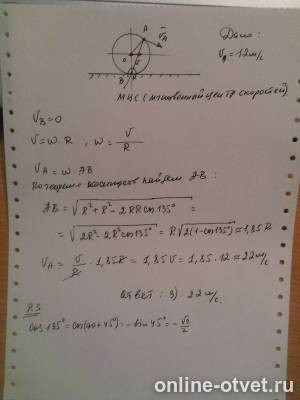 A
V̄A
Дано:
V₀ = 12 м/с
B
МЦС (мгновенный центр скоростей).
V_B = 0
V = ω·R ; ω = V/R
V_A = ω·AB
По теореме косинусов найдем AB:
AB = √(R² + R² - 2RR cos 135°) =
= √(2R² - 2R² cos 135°) = R√(2(1 - cos 135°)) ≈ 1,85R
V_A = V/R · 1,85R = 1,85V = 1,85·12 ≈ 22 м/с
Ответ: 3) 22 м/с.
P.S
cos 135° = cos(90+45°) = -sin 45° = -√2/2
online-otvet.ru